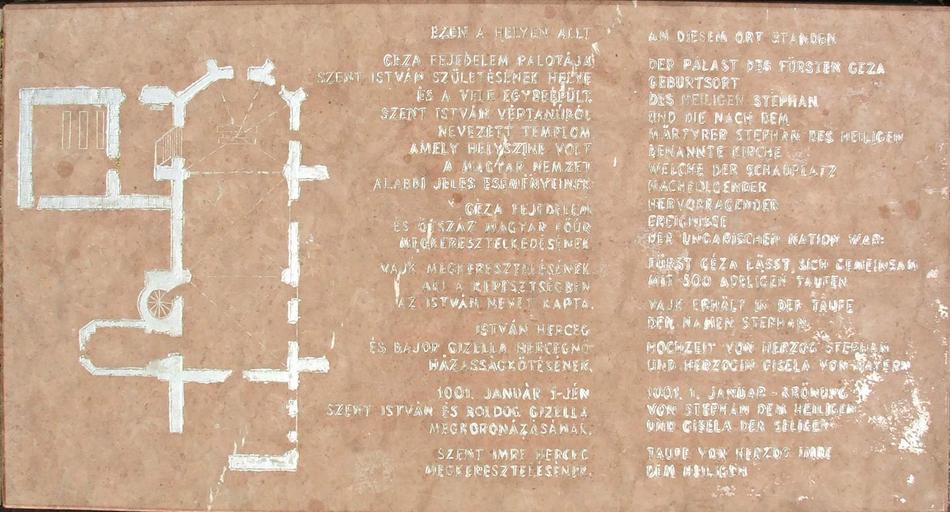 EZEN A HELYEN ÁLLT
GÉZA FEJEDELEM PALOTÁJA
SZENT ISTVÁN SZÜLETÉSÉNEK HELYE
ÉS A VELE EGYBEÉPÜLT,
SZENT ISTVÁN VÉRTANÚRÓL
NEVEZETT TEMPLOM
AMELY HELYSZÍNE VOLT
A MAGYAR NEMZET
ALÁBBI JELES ESEMÉNYEINEK
GÉZA FEJEDELEM
ÉS ÖTSZÁZ MAGYAR FŐÚR
MEGKERESZTELKEDÉSÉNEK
VAJK MEGKERESZTELÉSÉNEK
AKI A KERESZTSÉGBEN
AZ ISTVÁN NEVET KAPTA.
ISTVÁN HERCEG
ÉS BAJOR GIZELLA HERCEGNŐ
HÁZASSÁGKÖTÉSÉNEK.
1001. JANUÁR 1-JÉN
SZENT ISTVÁN ÉS BOLDOG GIZELLA
MEGKORONÁZÁSÁNAK.
SZENT IMRE HERCEG
MEGKERESZTELÉSÉNEK.
AN DIESEM ORT STANDEN
DER PALAST DES FÜRSTEN GÉZA
GEBURTSORT
DES HEILIGEN STEPHAN
UND DIE NACH DEM
MÄRTYRER STEPHAN DES HEILIGEN
BENANNTE KIRCHE
WELCHE DER SCHAUPLATZ
NACHFOLGENDER
HERVORRAGENDER
EREIGNISSE
DER UNGARISCHEN NATION WAR:
FÜRST GÉZA LÄSST SICH GEMEINSAM
MIT 500 ADELIGEN TAUFEN
VAJK ERHÄLT IN DER TAUFE
DEN NAMEN STEPHAN
HOCHZEIT VON HERZOG STEPHAN
UND HERZOGIN GISELA VON BAYERN
1001. 1. JANUAR - KRÖNUNG
VON STEPHAN DEM HEILIGEN
UND GISELA DER SELIGEN
TAUFE VON HERZOG IMRE
DEM HEILIGEN